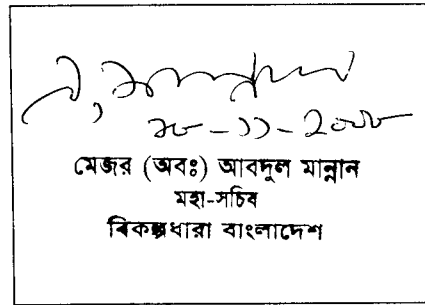 ১৮-১১-২০০৮
মেজর (অবঃ) আবদুল মান্নান
মহা-সচিব
বিকল্পধারা বাংলাদেশ